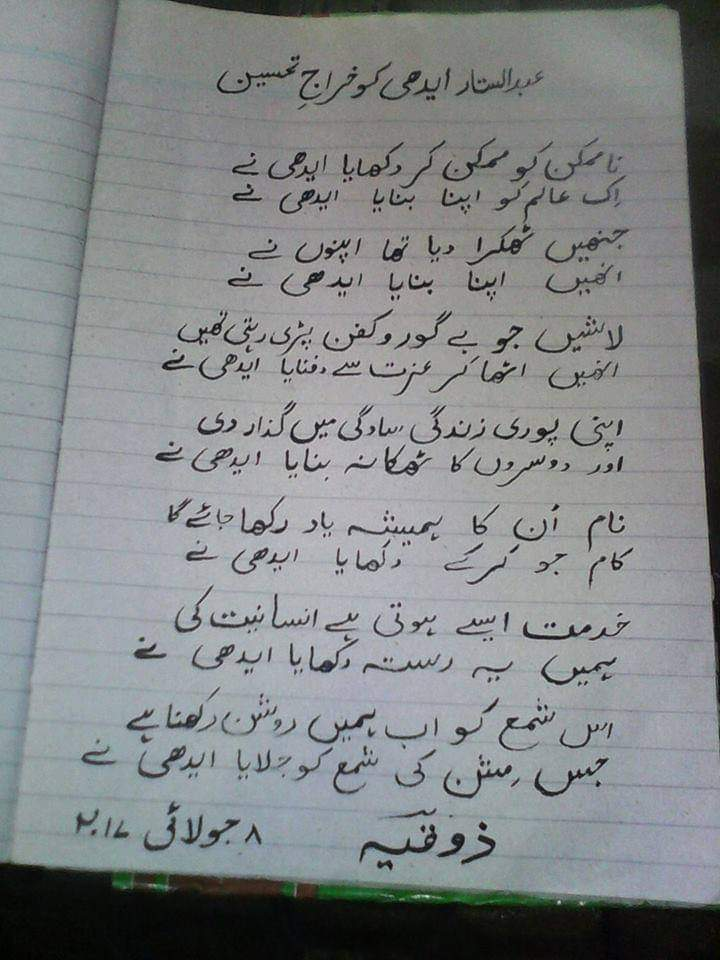 عبدالستار ایدھی کو خراجِ تحسین
ناممکن کو ممکن کر دکھایا ایدھی نے
اِک عالم کو اپنا بنایا ایدھی نے
جنھیں ٹھکرا دیا تھا اپنوں نے
انھیں اپنا بنایا ایدھی نے
لاشیں جو بے گور و کفن پڑی رہتی تھیں
انھیں اٹھا کر عزت سے دفنایا ایدھی نے
اپنی پوری زندگی سادگی میں گذار دی
اور دوسروں کا ٹھکانہ بنایا ایدھی نے
نام اُن کا ہمیشہ یاد رکھا جائے گا
کام جو کرکے دکھایا ایدھی نے
خدمت ایسے ہوتی ہے انسانیت کی
ہمیں یہ رستہ دکھایا ایدھی نے
اس شمع کو اب ہمیں روشن رکھنا ہے
جس مِشن کی شمع کو جلایا ایدھی نے
۸ جولائی ۲۰۱۷